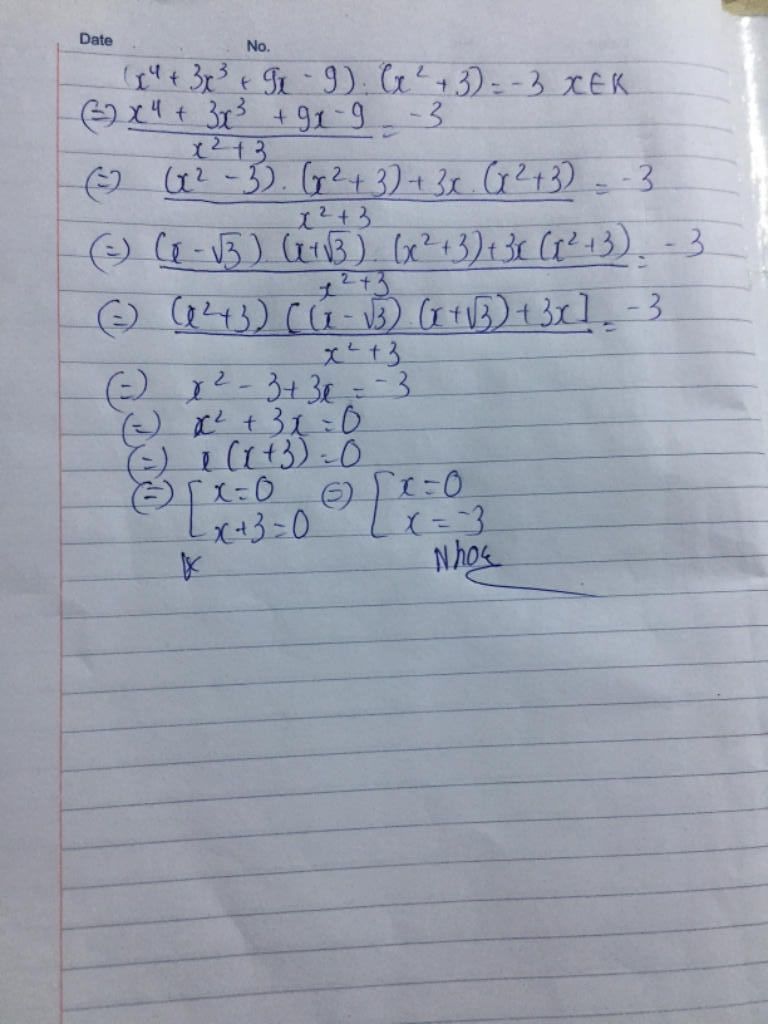 Date No.
(x⁴ + 3x³ + 9x - 9) : (x² + 3) = -3 x ∈ K
(=) x⁴ + 3x³ + 9x - 9 = -3
x² + 3
(=) (x² - 3). (x² + 3) + 3x . (x² + 3) = -3
x² + 3
(=) (x - √3) (x + √3) . (x² + 3) + 3x (x² + 3) = -3
x² + 3
(=) (x² + 3) [(x - √3) . (x + √3) + 3x] = -3
x² + 3
(=) x² - 3 + 3x = -3
(=) x² + 3x = 0
(=) x (x + 3) = 0
(=) [ x = 0 (=) [ x = 0
x + 3 = 0 x = -3